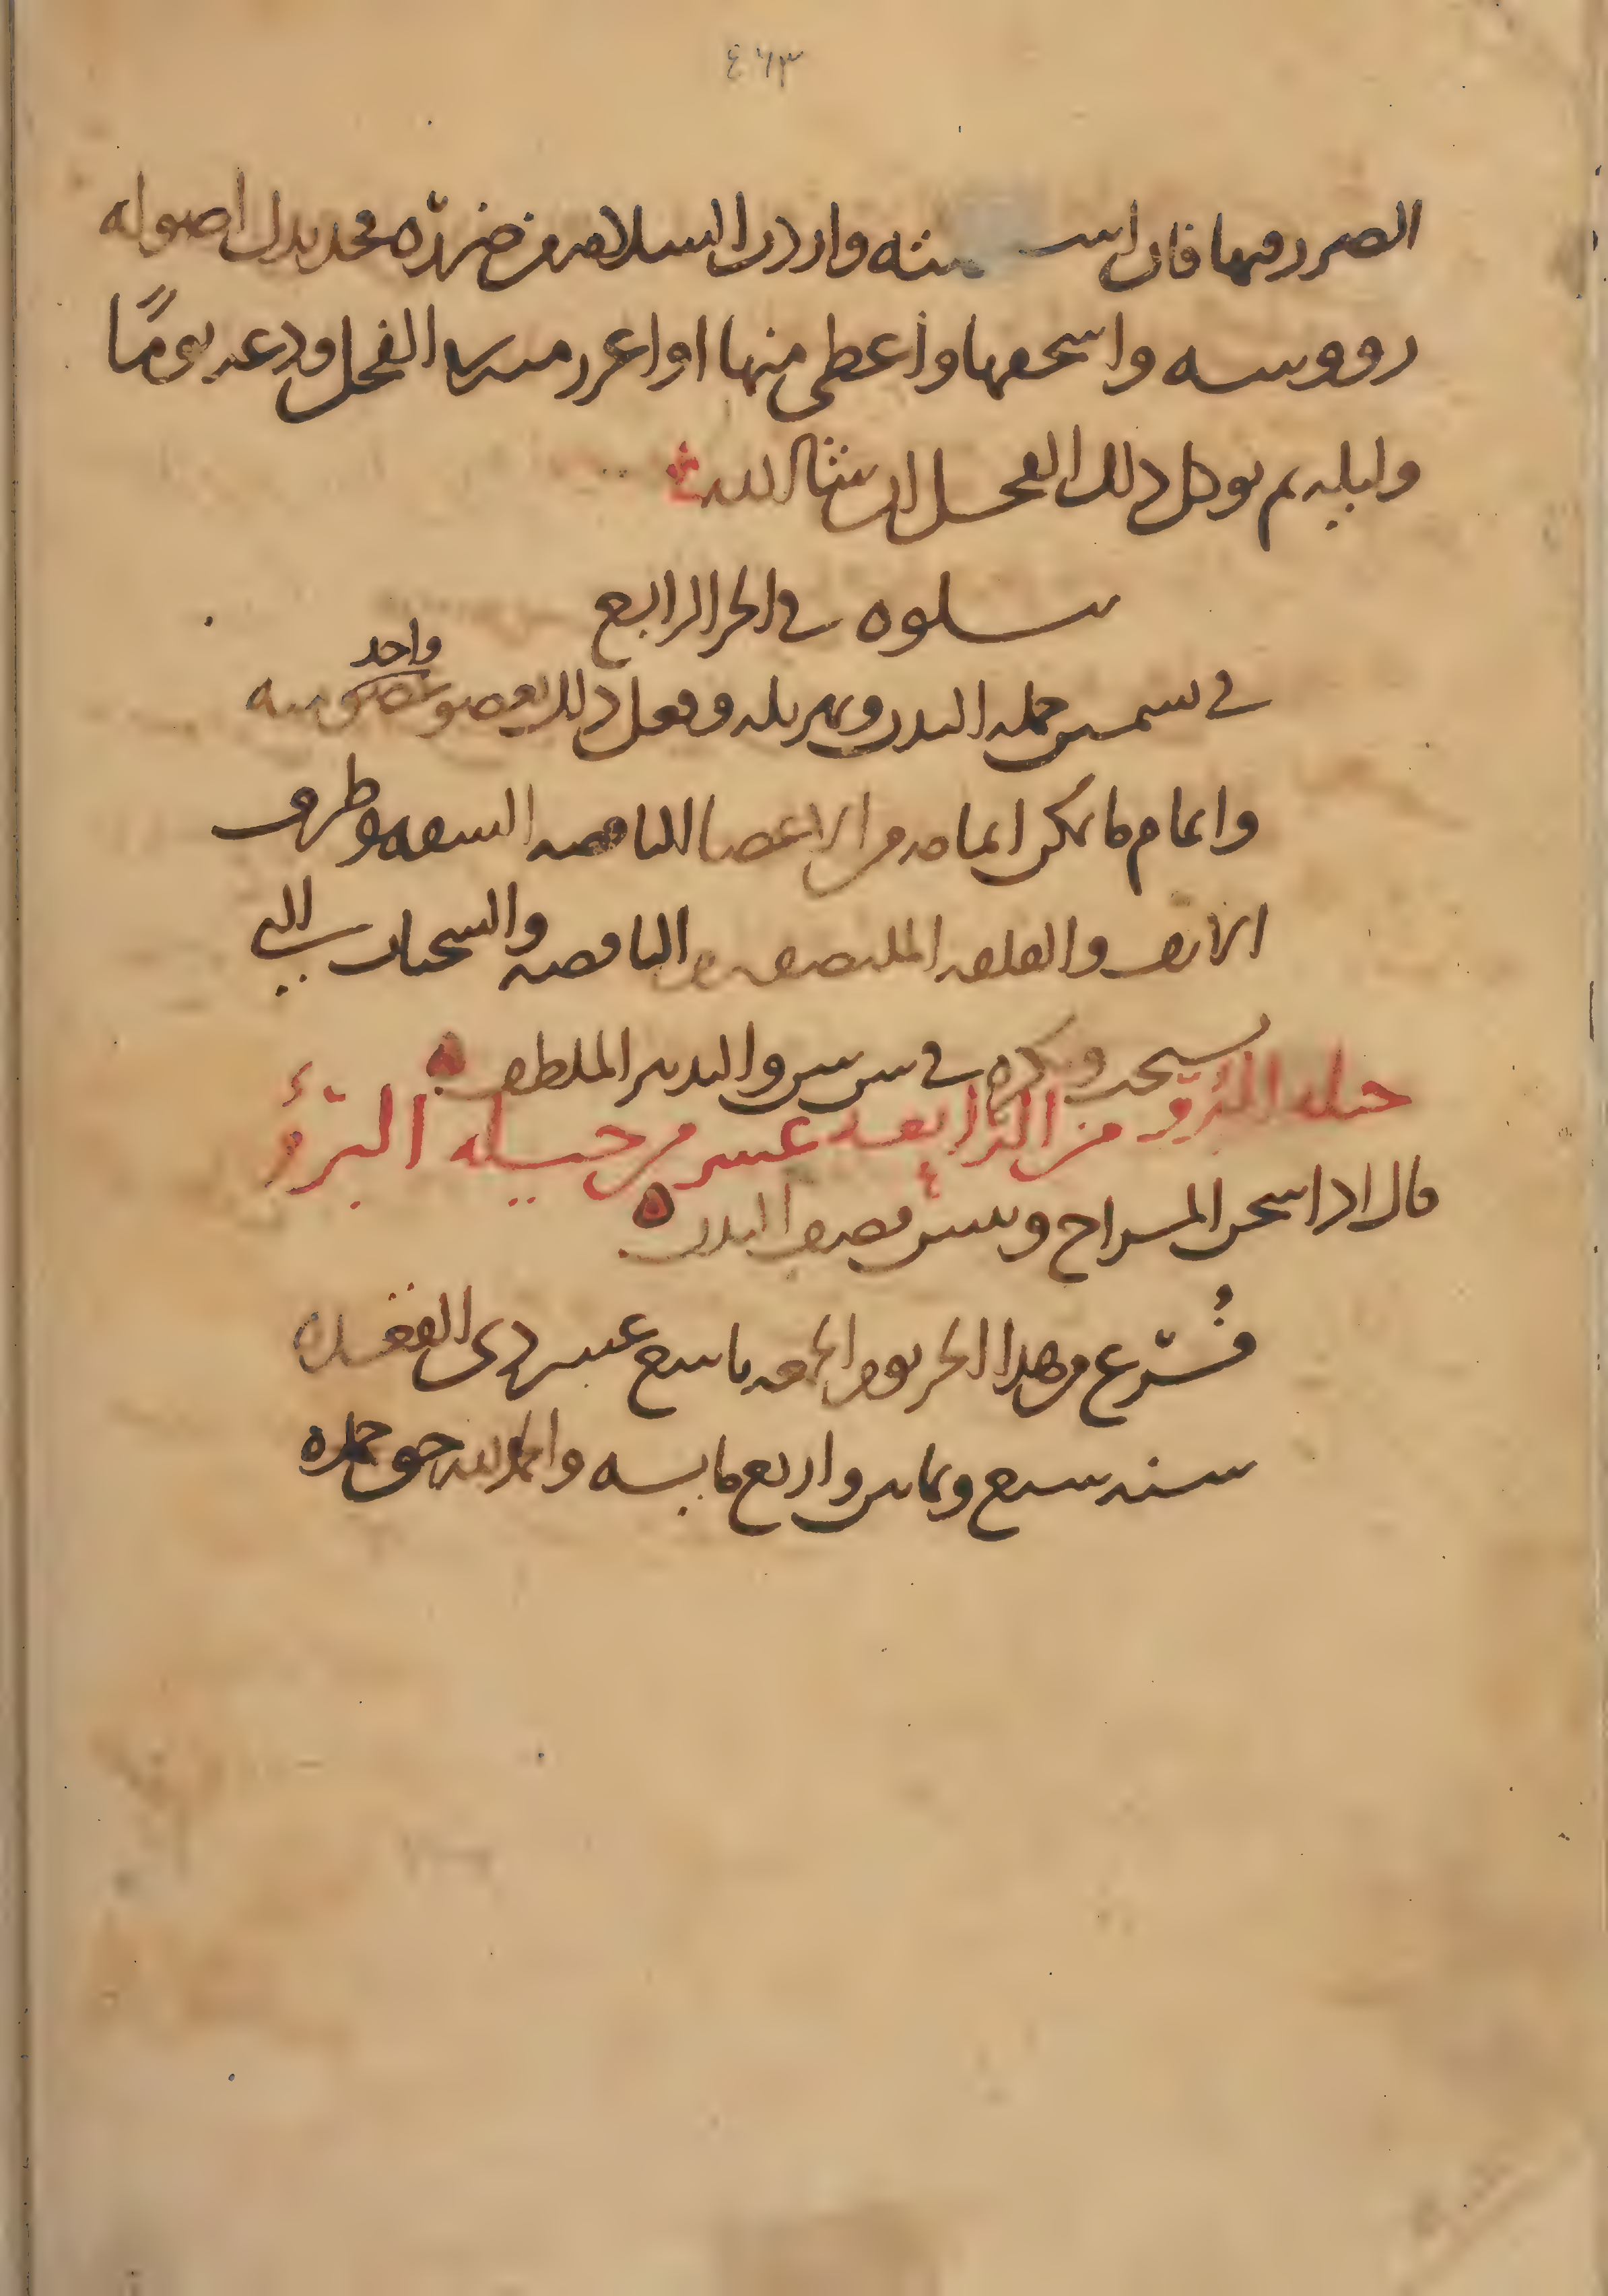 ٤٦٣
الضرر منها فان است منه واردت السلامه من ضرره فخذ بدل اصوله
رووسه واسحقها واعطى منها او اغرز منها الفجل ودعه يومًا
وليله ثم يوكل ذلك الفجل ان شا الله
يتلوه في الجز الرابع
في تسمين جمله البدن وتهزيله وفعل ذلك بعضو عضو منه
واحد
واتمام ما يمكن اتمامه من الاعضا الناقصه الشفه وطرف
الانف والقلفه الملتصقه الناقصه والسحنات التي
تسحب وتكره في والتدبير الملطف
حيله البرو من الرابعه عشر من حيله البرؤ
قال اذا سخن المزاج ويبس قضف البدن
فُرّغ من هذا الجز يوم الجمعه تاسع عشر ذي القعده
سنه سبع وثمانين واربع مايه والحمد لله حق حمده